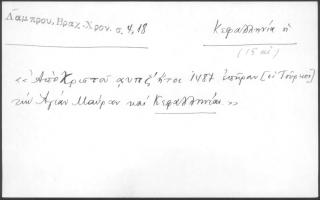 Λάμπρου, Βραχ. Χρον. σ. 4, 18
Κεφαλληνία ἡ
(15 αἰ)
«Ἀπὸ Χριστοῦ ͵αυπζʹ ἤτοι 1487 ἐπῆραν [οἱ Τοῦρκοι]
τὴν Ἁγίαν Μαύραν καὶ Κεφαλληνίαν»